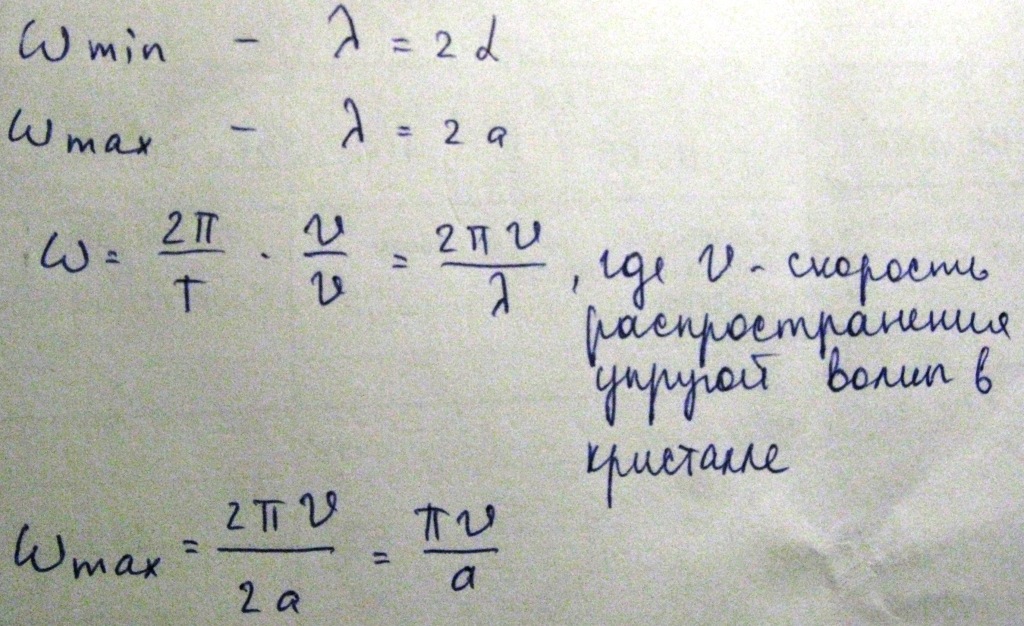 ω min - λ = 2 L
ω max - λ = 2 a
ω = 2π/T · v/v = 2πv/λ , где v - скорость
распространения
упругой волны в
кристалле
ω max = 2πv/2a = πv/a